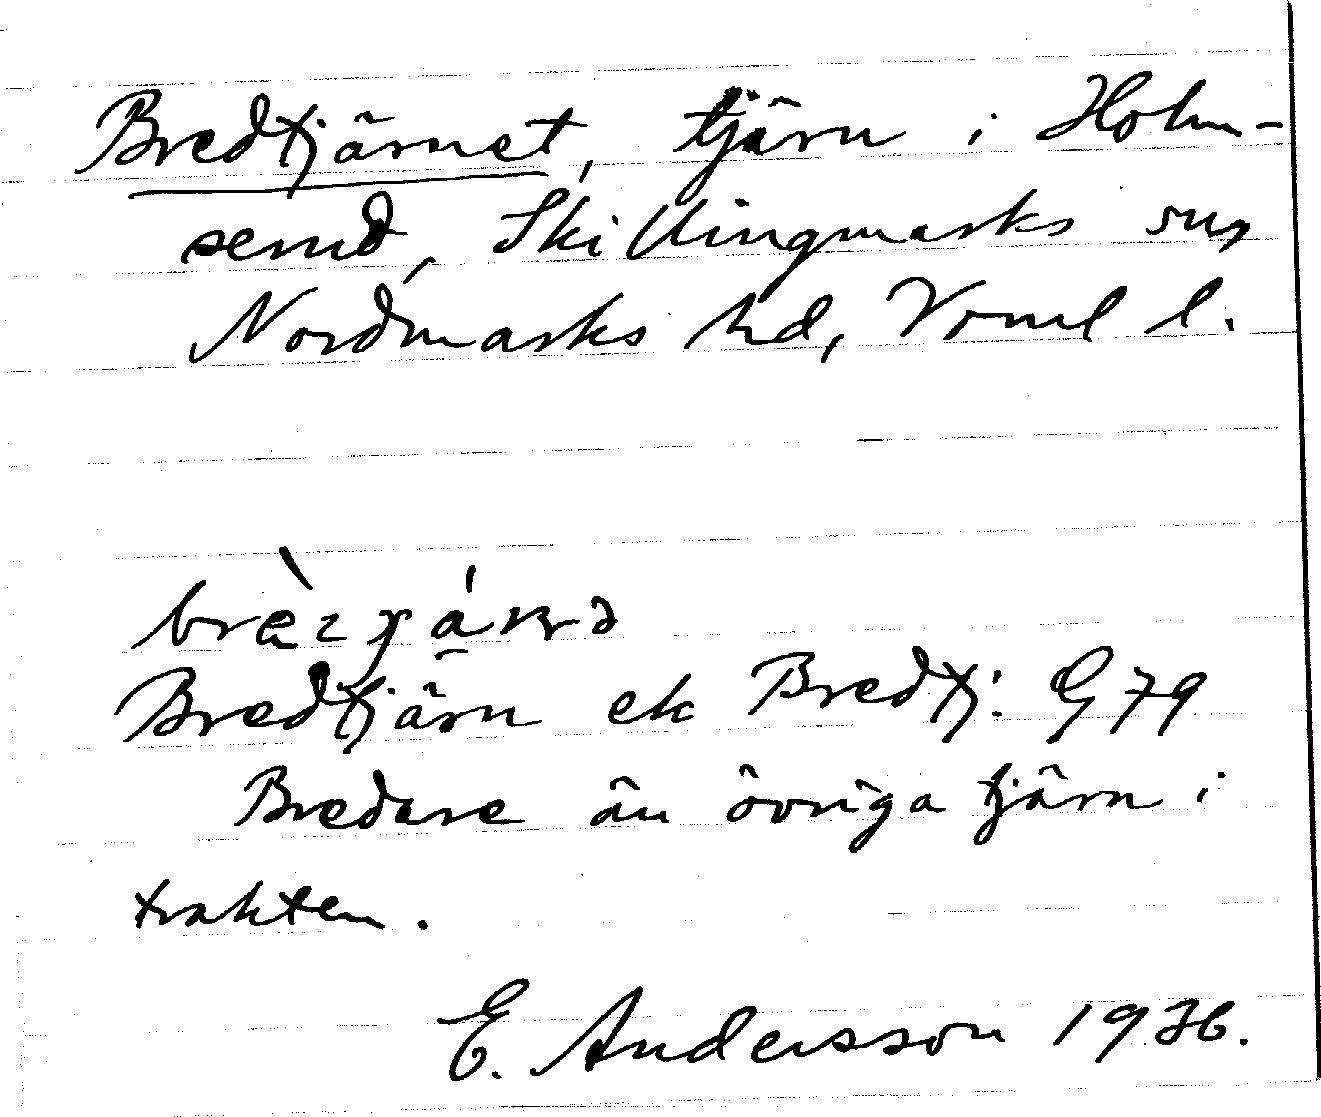 Bredtjärnet, tjärn i Holm-
serud, Skillingmarks sn,
Nordmarks hd, Vrml l.
Bredtjärn ek Bredtj: G 79
Bredare än övriga tjärn i
trakten.
E. Andersson 1936.